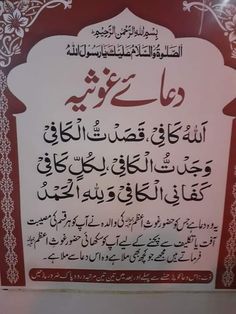 بِسْمِ اللهِ الرَّحْمٰنِ الرَّحِيْمِ
اَلصَّلٰوةُ وَالسَّلَامُ عَلَيْكَ يَا رَسُوْلَ اللهِ
دعائے غوثیہ
اَللهُ كَافِيْ، قَصَدْتُ الْكَافِيْ
وَجَدْتُ الْكَافِيْ، لِكُلٍّ كَافِيْ
كَفَانِيَ الْكَافِيْ وَلِلّٰهِ الْحَمْدُ
یہ وہ دعا ہے جس کو حضور غوث اعظم کی والدہ نے آپ کو ہر قسم کی مصیبت
آفت یا تکلیف سے بچنے کے لیے آپ کو سکھائی حضور غوث اعظم
فرماتے ہیں مجھے جو کچھ بھی ملا ہے وہ اس دعا سے ملا ہے۔